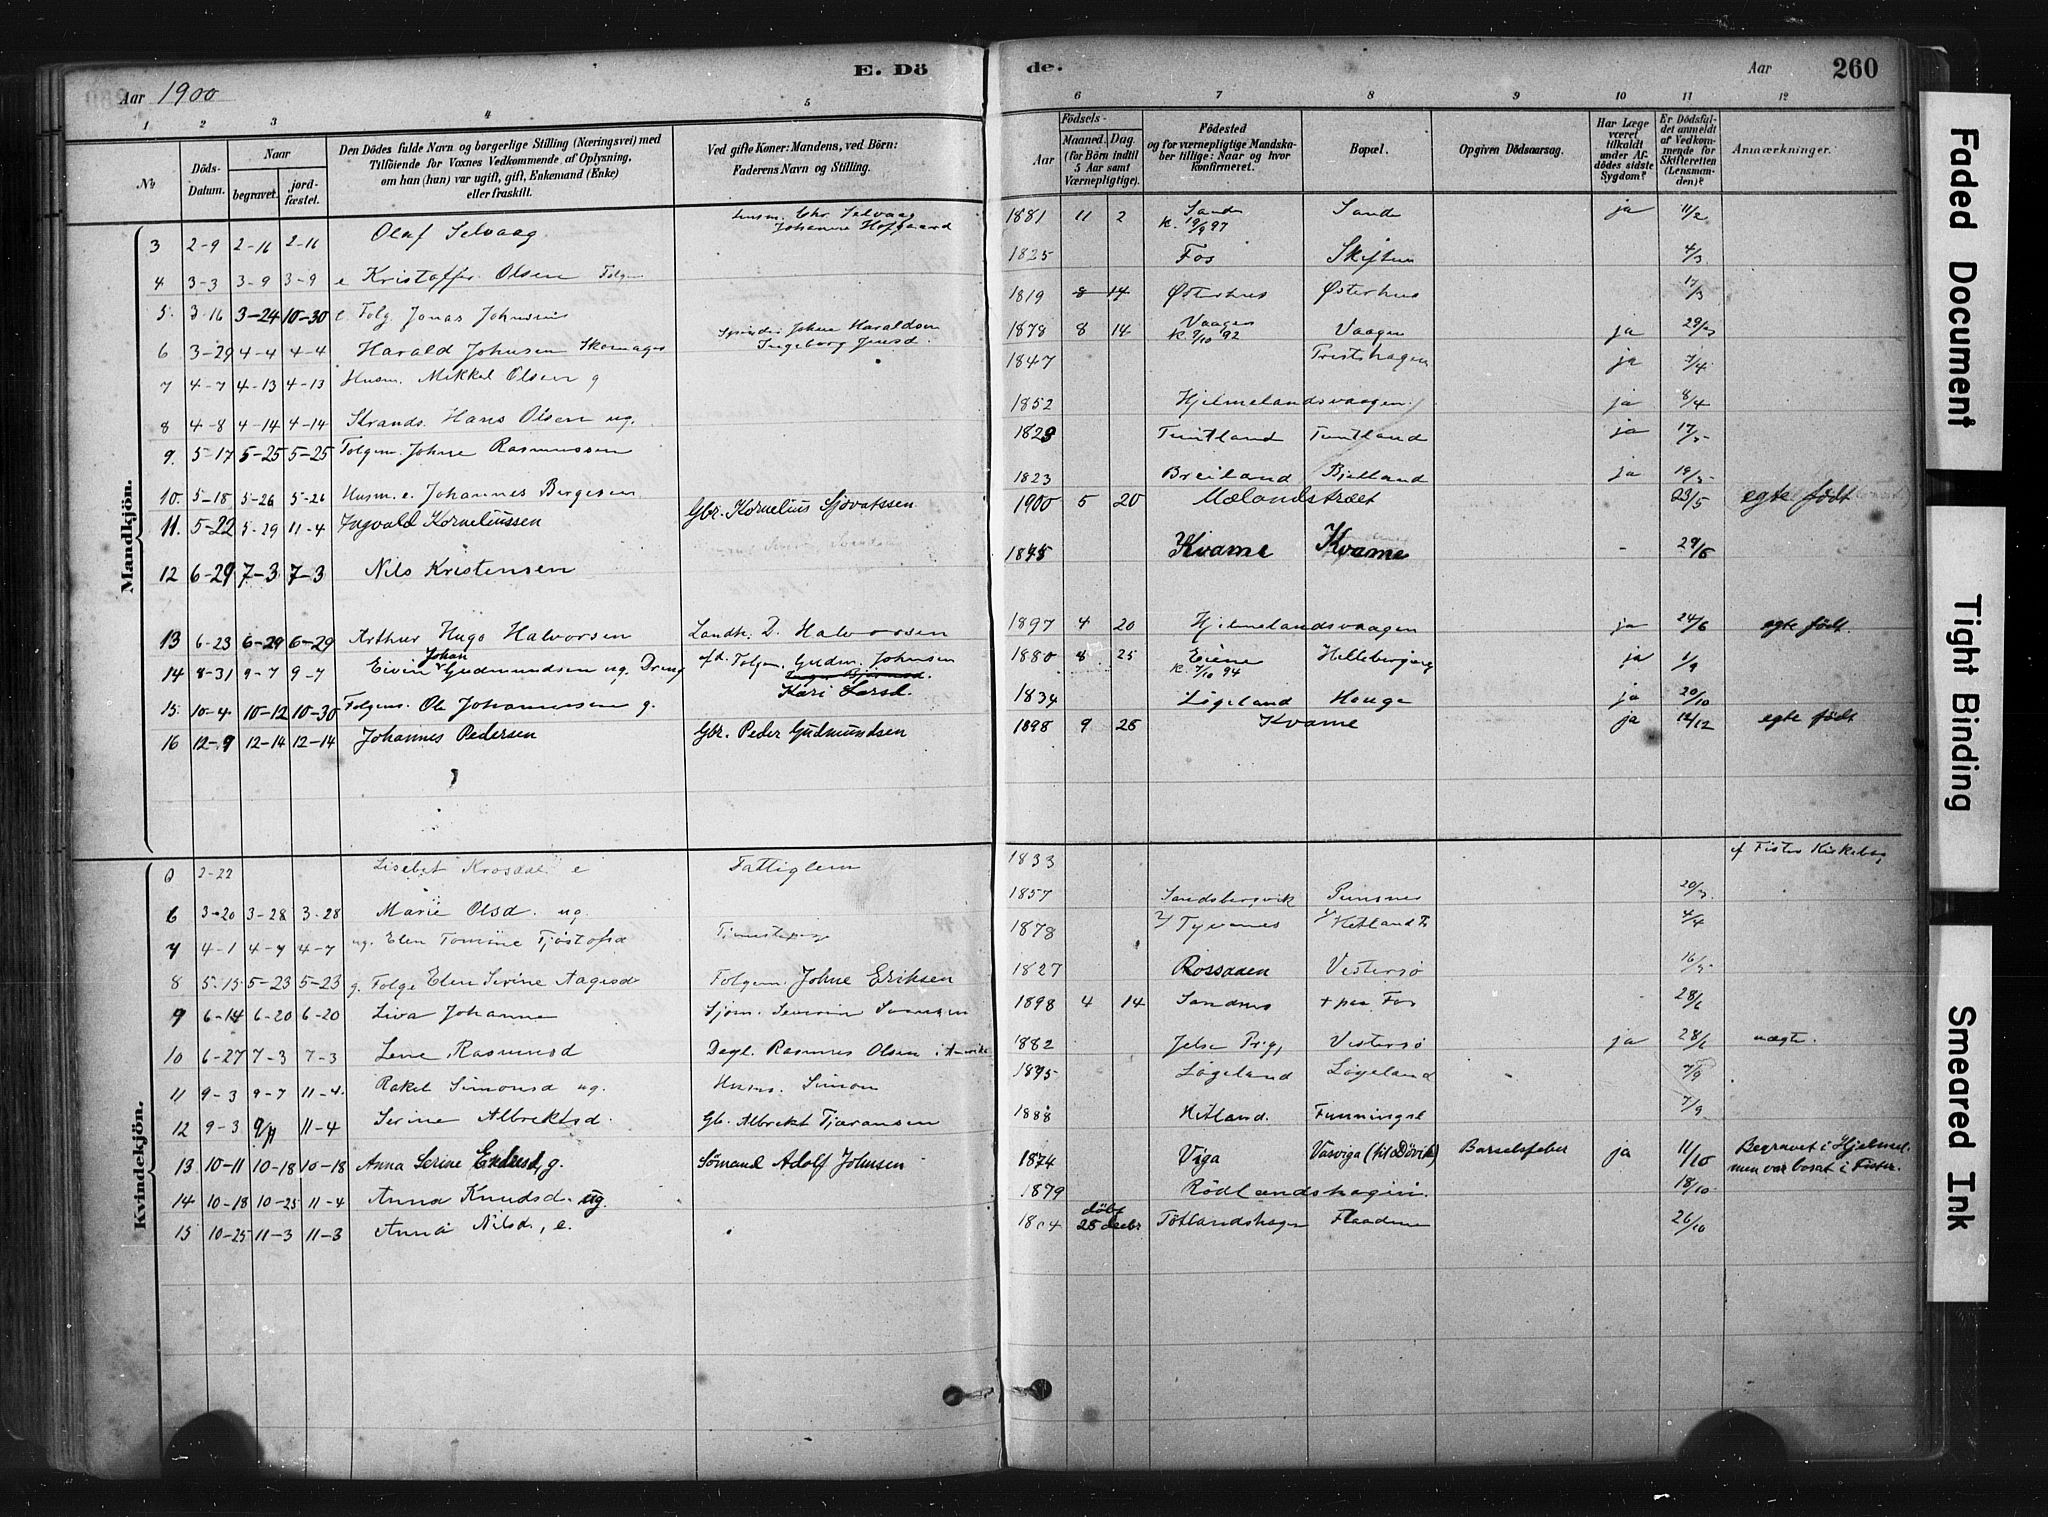 E. Dö de.
Aar 1900
Aar 260
1 2 3 4 5 6 7 8 9 10 11 12
No
Döds-Datum.
Naar
begravet. jordfæstet.
Den Dödes fulde Navn og borgerlige Stilling (Næringsvei) med
Tilföiende for Voxnes Vedkommende af Oplysning,
om han (hun) var ugift, gift, Enkemand (Enke)
eller fraskilt.
Ved gifte Koner: Mandens, ved Börn:
Faderens Navn og Stilling.
Födsels-
Aar
Maaned. Dag.
(for Börn indtil
5 Aar samt
Værnepligtige).
Födested
og for værnepligtige Mandska-
ber tillige: Naar og hvor
konfirmeret.
Bopæl.
Opgiven Dödsaarsag.
Har Læge
været
tilkaldt
under Af-
dödes sidste
Sygdom?
Er Dödsfal-
det anmeldt
af Vedkom-
mende for
Skifteretten
(Lensman-
den)?
Anmærkninger.
Mandkjön.
3 2-9 2-16 2-16 Olaf Selvaag Husm. Chr Selvaag Johanne Hofgaard 1881 11 2 Sande K. 19/9 97 Sande ja 11/2
4 3-3 3-9 3-9 e Kristoffer Olsen 1825 Fos Skiftun 4/3
5. 3-16 3-24 10-30 e. Folg. Jonas Johnsen 1819 8 14 Østerhus Østerhus 17/3
6 3-29 4-4 4-4 Harald Johnsen Skomager Johne Haraldsen Ingeborg Jensd. 1878 8 14 Vaagen K 2/10 92 Vaagen ja 29/3
7 4-7 4-13 4-13 Husm. Mikkel Olsen g 1847 ja 7/4
8 4-8 4-14 4-14 Strands. Hans Olsen ug. 1852 Hjelmelandsvaagen ja 8/4
9. 5-17 5-25 5-25 Folgem. Johne Rasmussen 1829 Tuntland Tuntland ja 17/5
10. 5-18 5-26 5-26 Husm. e. Johannes Børgesen 1823 Breiland Bjelland ja 19/5
11. 5-22 5-29 11-4 Ingvald Korneliussen Gbr. Kornelius Sjovatssen 1900 5 20 Mælandstræet 23/5 egte födt
12 6-29 7-3 7-3 Nils Kristensen 1845 Kvame Kvame - 29/6
13 6-23 6-29 6-29 Arthur Hugo Halvorsen Landh. D. Halvorsen 1897 4 20 Hjelmelandsvaagen ja 24/6 egte födt.
14 8-31 9-7 9-7 Eivin Johan Gudmundsen ug. Dreng afd. Folgem. Gudm. Johnsen Kari Larsd. 1880 8 25 Eiene K. 7/10 94 Helleberget ja 1/9
15. 10-4 10-12 10-30 Folgem. Ole Johannessen g. 1834 Løgeland Hauge ja 20/10
16 12-9 12-14 12-14 Johannes Pedersen Gbr. Peder Gudmundsen 1898 9 28 Kvame ja 12/12 egte födt
Kvindekjön.
2-22 Lisebet Krosdal e Fattiglem 1833 Fister Kirkebog
6 3-20 3-28 3-28 Marie Olsd. ug. 1857 Sandsbergvik Punsnes 20/3
7 4-1 4-7 4-7 ug. Elen Tomine Tjøstofsd Tjenestepige 1878 Tysvær Hetland 4/4
8 5-15 5-23 5-23 g. Folge Elen Serine Aagesd Folgem. Johne Eriksen 1827 Rossaaen Vestersø 16/5
9 6-14 6-20 6-20 Liva Johanne Sjøm. Severin Svensen 1898 4 14 Sandnes + paa Fos 28/6
10 6-27 7-3 7-3 Lene Rasmusd Dagl. Rasmus Olsen i Amerika 1882 Jelse Prg, Vestersø ja 28/6 uægte.
11 9-3 9-7 11-4. Rakel Simonsd ug. Husm. Simon 1895 Løgeland Løgeland 7/9
12 9-3 9/7 11-4 Serine Albrektsd. Gb. Albrekt Tjøransen 1888 Hetland. Funningsl 7/9
13 10-11 10-18 10-18 Anna Serine Endresd, g. Sømand Adolf Johnsen 1874 Viga Vasviga (til Døvik) Barselsfeber ja 11/10 Begravet i Hjelmel. men var bosat i Fister.
14 10-18 10-25 11-4 Anna Knudsd. ug. 1879 Rödlandshagen. 18/10
15 10-25 11-3 11-3 Anna Nilsd, e. 1804 döbt 26 decbr. Tøtlandshagen Flaadene 26/10
Faded Document
Tight Binding
Smeared Ink